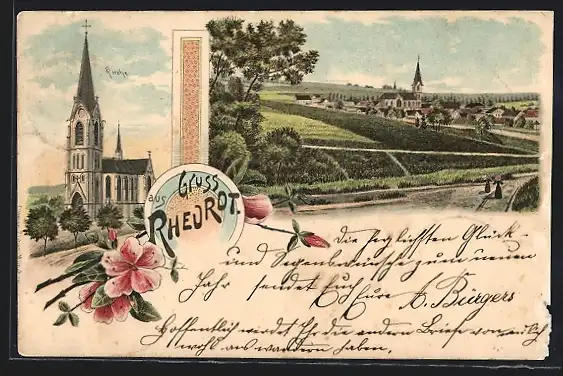 Kirche
Gruss
aus
RHEDROT.
Die herzlichsten Glück-
und Segenswünsche zum neuen
Jahr sendet Euch
Eure A. Bürgers
Hoffentlich werdet Ihr die andern Briefe von
wohl haben.